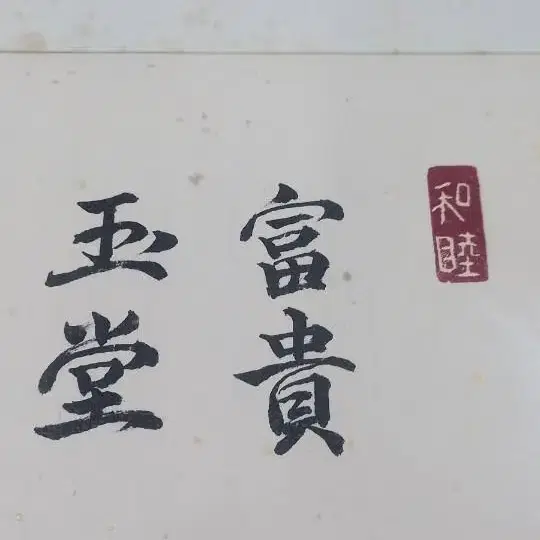 和睦
富貴
玉堂